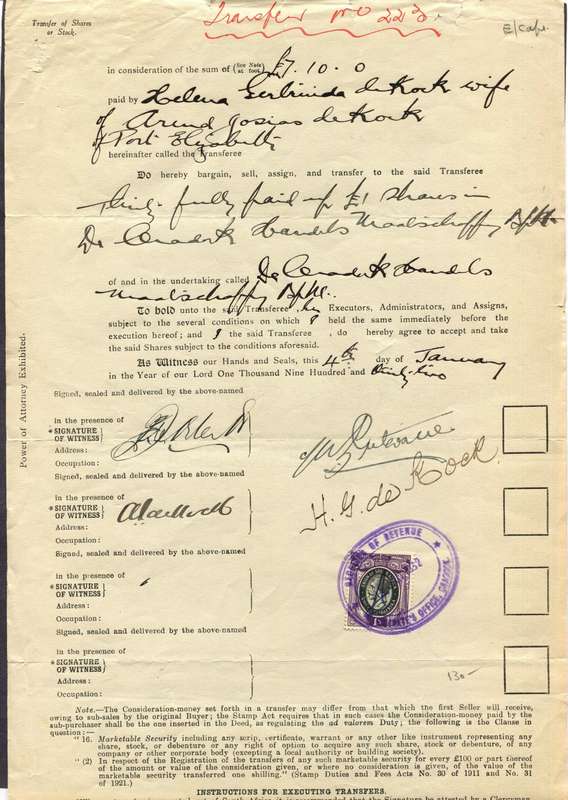 Transfer of Shares
or Stock.
Transfer No 223.
E/Cape.
in consideration of the sum of (See Note at foot) £7.10.0
paid by Helena Gertruida de Kock wife
of Arend Josias de Kock
of Port Elizabeth
hereinafter called the Transferee
Do hereby bargain, sell, assign, and transfer to the said Transferee
fully paid up £1 Shares in
De Handels Maatschappy Bpkt.
of and in the undertaking called De Handels
Maatschappy Bpkt.
To hold unto the said Transferee, her Executors, Administrators, and Assigns,
subject to the several conditions on which I held the same immediately before the
execution hereof; and I the said Transferee, do hereby agree to accept and take
the said Shares subject to the conditions aforesaid.
As Witness our Hands and Seals, this 4th day of January
in the Year of our Lord One Thousand Nine Hundred and Thirty two
Power of Attorney Exhibited.
Signed, sealed and delivered by the above-named
in the presence of
*SIGNATURE
OF WITNESS
Address:
Occupation:
Signed, sealed and delivered by the above-named
in the presence of
*SIGNATURE
OF WITNESS
Address:
Occupation:
H. G. de Kock
Signed, sealed and delivered by the above-named
in the presence of
*SIGNATURE
OF WITNESS
Address:
Occupation:
OF REVENUE
OFFICE
Signed, sealed and delivered by the above-named
in the presence of
*SIGNATURE
OF WITNESS
Address:
Occupation:
130-
Note.—The Consideration-money set forth in a transfer may differ from that which the first Seller will receive,
owing to sub-sales by the original Buyer; the Stamp Act requires that in such cases the Consideration-money paid by the
sub-purchaser shall be the one inserted in the Deed, as regulating the ad valorem Duty; the following is the Clause in
question:—
"16. Marketable Security including any scrip, certificate, warrant or any other like instrument representing any
share, stock, or debenture or any right of option to acquire any such share, stock or debenture, of any
company or other corporate body (excepting a local authority or building society).
"(2) In respect of the Registration of the transfers of any such marketable security for every £100 or part thereof
of the amount or value of the consideration given, or where no consideration is given, of the value of the
marketable security transferred one shilling." (Stamp Duties and Fees Acts No. 30 of 1911 and No. 31
of 1921.)
INSTRUCTIONS FOR EXECUTING TRANSFERS.